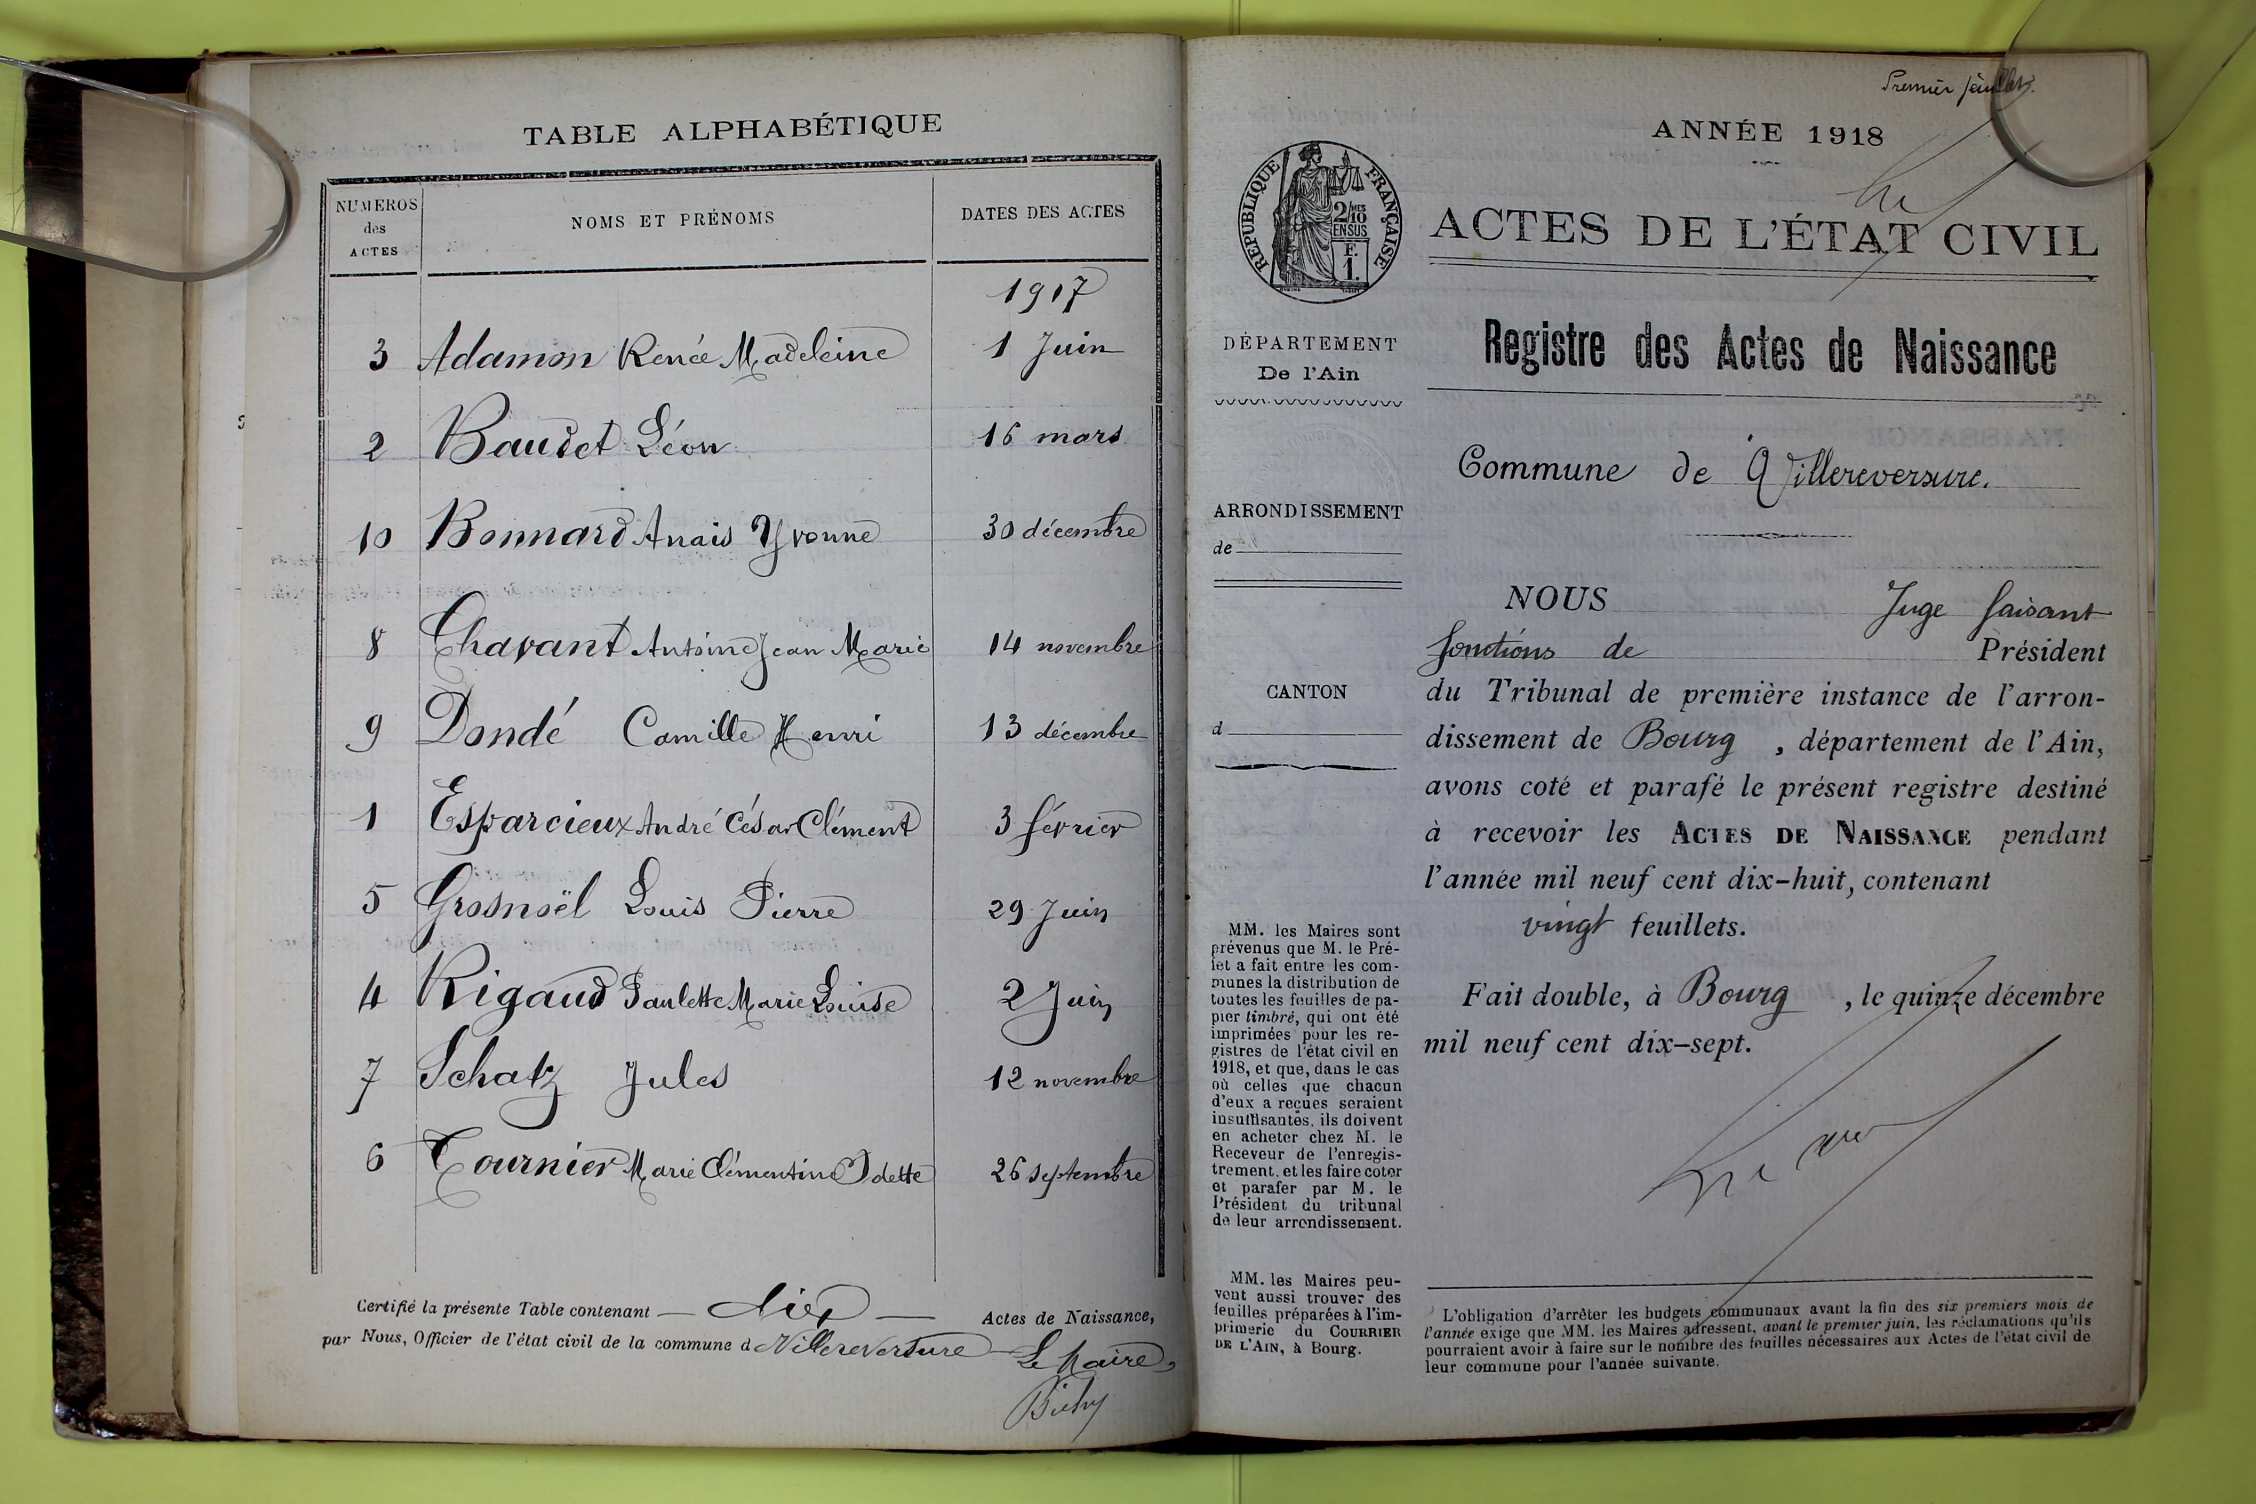 TABLE ALPHABÉTIQUE
NUMEROS
des
ACTES
NOMS ET PRÉNOMS
DATES DES ACTES
1917
3 Adamon Renée Madeleine 1 Juin
2 Baudet Léon 16 mars
10 Bonnard Anais Yvonne 30 décembre
8 Chavant Antoine Jean Marie 14 novembre
9 Dondé Camille Henri 13 décembre
1 Esparcieux André César Clément 3 février
5 Grosnoël Louis Pierre 29 Juin
4 Rigaud Paulette Marie Louise 2 Juin
7 Schatz Jules 12 novembre
6 Tournier Marie Clémentine Odette 26 septembre
Certifié la présente Table contenant — dix — Actes de Naissance,
par Nous, Officier de l'état civil de la commune d Villereversure
Le Maire,
Premier feuillet.
ANNÉE 1918
RÉPUBLIQUE FRANÇAISE
2/10 MES
EN SUS
F.
1.
ACTES DE L'ÉTAT CIVIL
DÉPARTEMENT
De l'Ain
ARRONDISSEMENT
de
CANTON
d
MM. les Maires sont
prévenus que M. le Pré-
fet a fait entre les com-
munes la distribution de
toutes les feuilles de pa-
pier timbré, qui ont été
imprimées pour les re-
gistres de l'état civil en
1918, et que, dans le cas
où celles que chacun
d'eux a reçues seraient
insuffisantes, ils doivent
en acheter chez M. le
Receveur de l'enregis-
trement, et les faire coter
et parafer par M. le
Président du tribunal
de leur arrondissement.
MM. les Maires peu-
vent aussi trouver des
feuilles préparées à l'im-
primerie du COURRIER
DE L'AIN, à Bourg.
Registre des Actes de Naissance
Commune de Villereversure.
NOUS Juge faisant
fonctions de Président
du Tribunal de première instance de l'arron-
dissement de Bourg, département de l'Ain,
avons coté et parafé le présent registre destiné
à recevoir les ACTES DE NAISSANCE pendant
l'année mil neuf cent dix-huit, contenant
vingt feuillets.
Fait double, à Bourg, le quinze décembre
mil neuf cent dix-sept.
L'obligation d'arrêter les budgets communaux avant la fin des six premiers mois de
l'année exige que MM. les Maires adressent, avant le premier juin, les réclamations qu'ils
pourraient avoir à faire sur le nombre des feuilles nécessaires aux Actes de l'état civil de
leur commune pour l'année suivante.